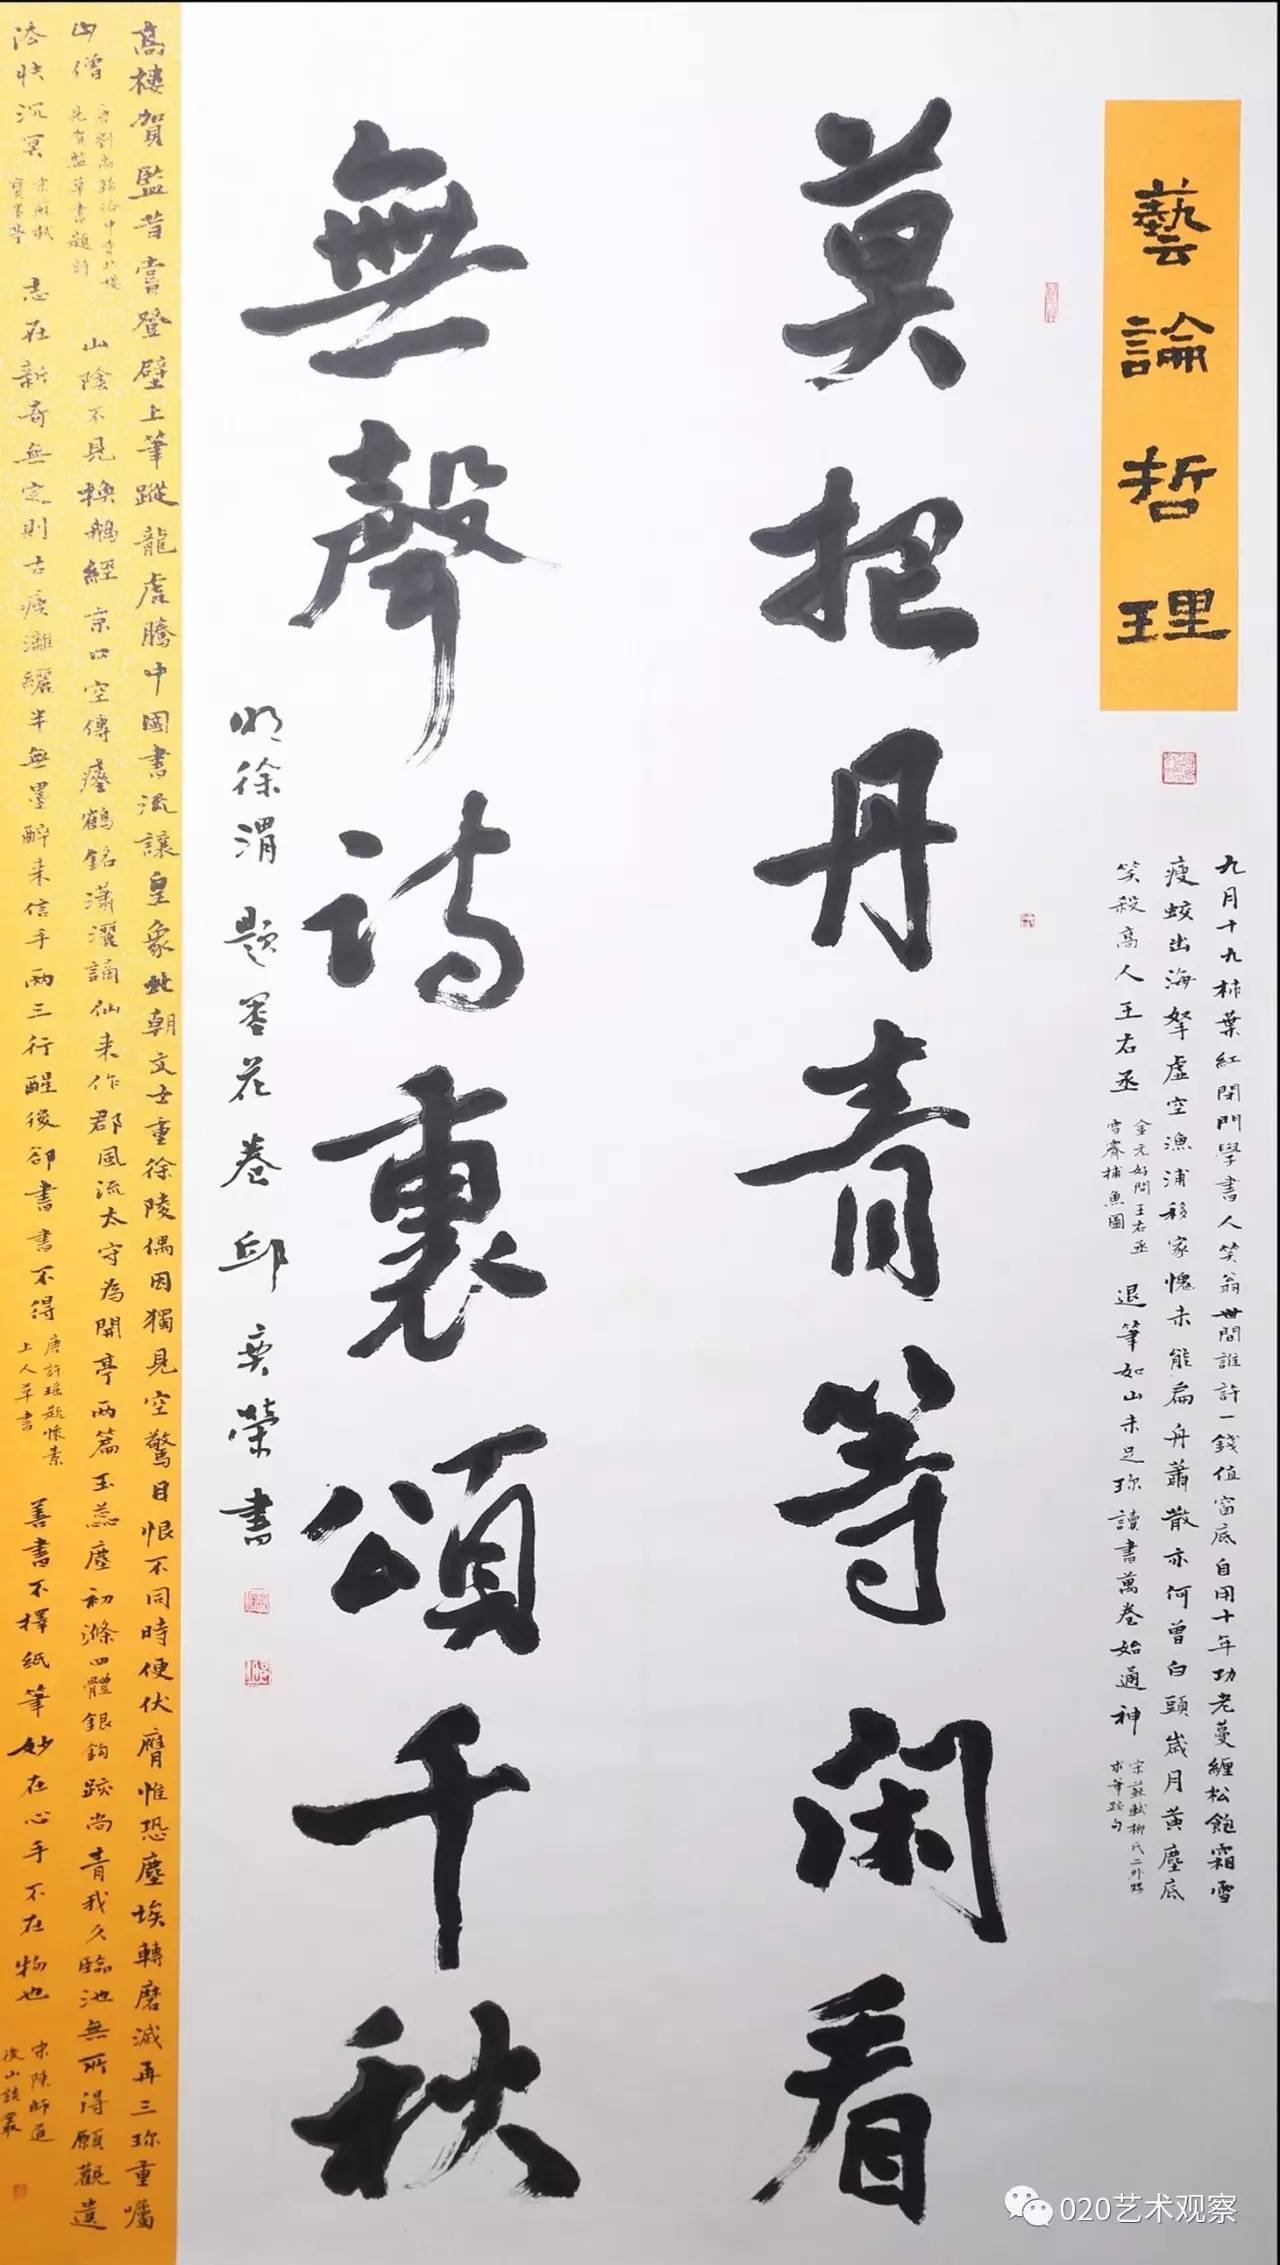 藝論哲理
九月十九柿葉紅閉門學書人笑翁世間誰許一錢值窗底自用十年功老蔓纏松飽霜雪
瘦蛟出海拏虛空漁浦移家愧未能扁舟蕭散亦何曾白頭歲月黃塵底
笑殺高人王右丞
金元好問王右丞
雪霽捕魚圖
退筆如山未足珍讀書萬卷始通神
宋蘇軾柳氏二外甥
求筆跡句
莫把丹青等閑看
無聲詩裏頌千秋
明徐渭題墨花卷邱奕榮書
高樓賀監昔嘗登壁上筆蹤龍虎騰中國書流讓皇象北朝文士重徐陵偶因獨見空驚目恨不同時便伏膺惟恐塵埃轉磨滅再三珍重囑
山僧
唐劉禹錫洛中寺北樓
見賀監草書題詩
山陰不見換鵝經京口空傳瘞鶴銘瀟灑謫仙來作郡風流太守為開亭兩篇玉蕊塵初滌四體銀鉤跡尚青我久臨池無所得願觀遺
法快沉冥
宋蘇軾
寶墨亭
志在新奇無定則古瘦灕纚半無墨醉來信手兩三行醒後卻書書不得
唐許瑤題懷素
上人草書
善書不擇紙筆妙在心手不在物也
宋陳師道
後山談叢
020艺术观察